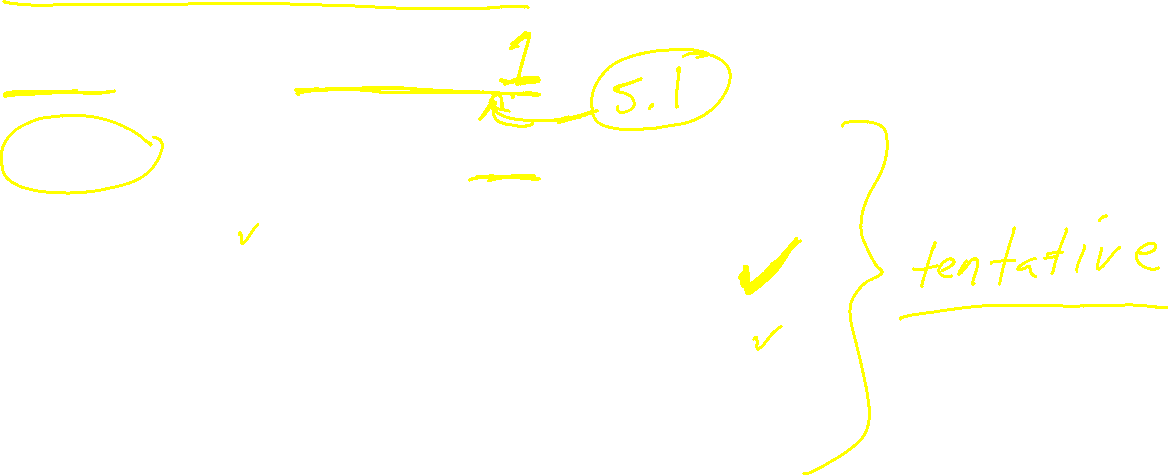 1
5.1
tentative